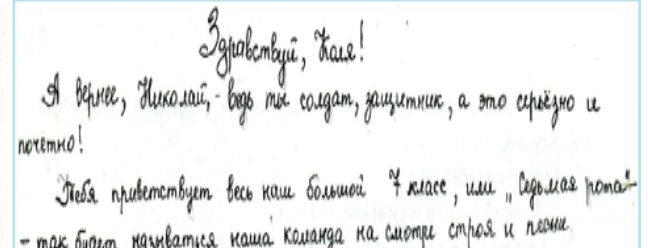 Здравствуй, Коля!
А вернее, Николай, - ведь ты солдат, защитник, а это серьёзно и
почётно!
Тебя приветствует весь наш большой 7 класс, или „Седьмая рота"-
- так будет называться наша команда на смотре строя и песни